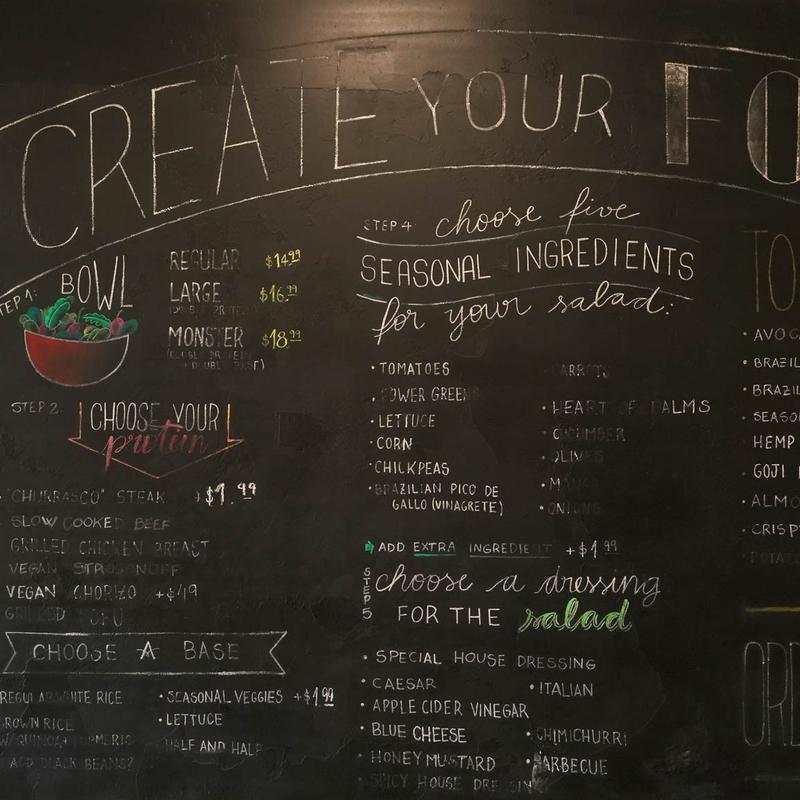 CREATE YOUR FO
STEP 1: BOWL
REGULAR $14.99
LARGE $16.99
MONSTER $18.99
(DOUBLE PROTEIN
STEP 2
CHOOSE YOUR
protein
"CHURRASCO" STEAK +$1.99
SLOW COOKED BEEF
GRILLED CHICKEN BREAST
VEGAN STROGONOFF
VEGAN CHORIZO
GRILLED TOFU
CHOOSE A BASE
REGULAR WHITE RICE
BROWN RICE
W/QUINOA + TURMERIC
ADD BLACK BEANS?
• SEASONAL VEGGIES +$1.99
• LETTUCE
HALF AND HALF
STEP 4: choose five
SEASONAL INGREDIENTS
for your salad:
• TOMATOES
• POWER GREENS
• LETTUCE
• CORN
• CHICKPEAS
• BRAZILIAN PICO DE
GALLO (VINAGRETE)
• CARROTS
• HEART OF PALMS
• CUCUMBER
• OLIVES
• MANGO
• ONIONS
ADD EXTRA INGREDIENT +$1.99
STEP 5
choose a dressing
FOR THE salad
• SPECIAL HOUSE DRESSING
• CAESAR
• APPLE CIDER VINEGAR
• BLUE CHEESE
• HONEY MUSTARD
• SPICY HOUSE DRESSING
• ITALIAN
• CHIMICHURRI
• BARBECUE
TO
• AVOC
• BRAZIL
• BRAZIL
• SEASO
• HEMP
• GOJI
• ALMO
• CRISPY
• POTATO
ORD